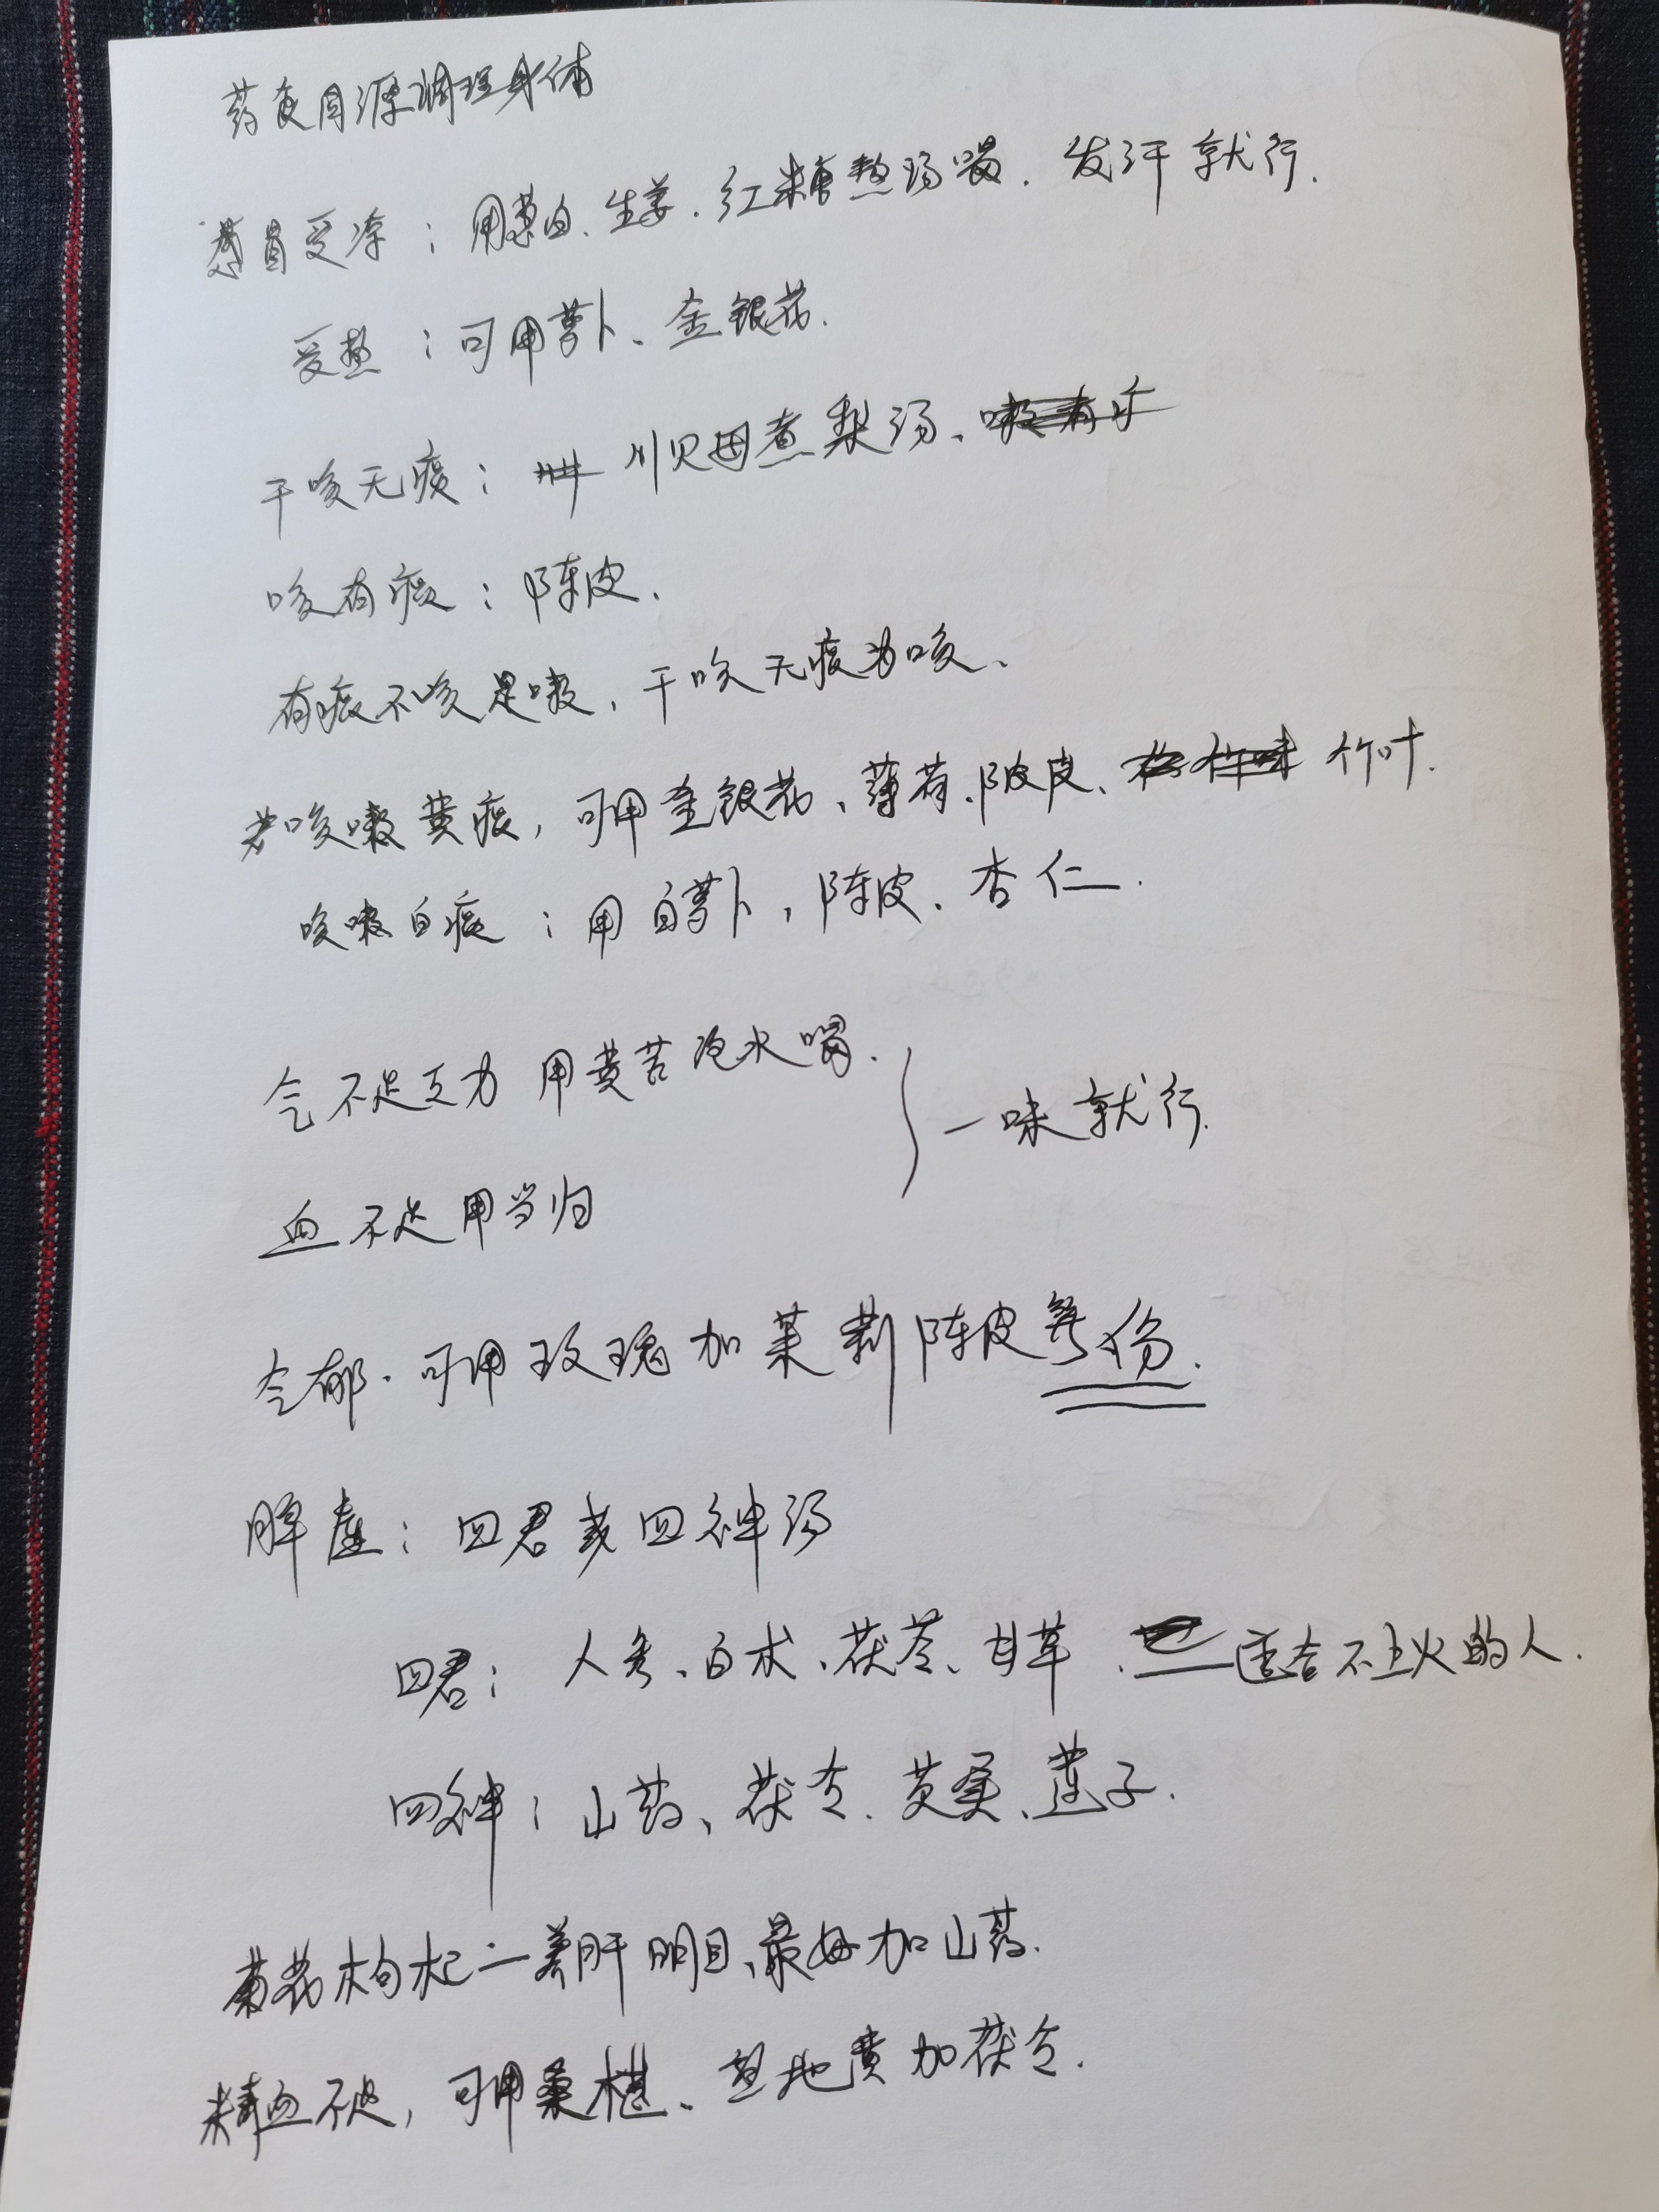 药食同源调理身体
感冒受凉：用葱白、生姜、红糖熬汤喝．发汗就行．
受热：可用萝卜、金银花．
干咳无痰：川贝母煮梨汤、
咳有痰：陈皮．
有痰不咳是嗽，干咳无痰为咳、
若咳嗽黄痰，可用金银花、薄荷、陈皮、竹叶．
咳嗽白痰：用白萝卜，陈皮、杏仁．
气不足乏力 用黄芪泡水喝．
一味就行．
血不足用当归
气郁．可用玫瑰加茉莉陈皮等份．
脾虚：四君或四神汤
四君：人参、白术、茯苓、甘草．适合不上火的人．
四神：山药、茯苓．芡实、莲子．
菊花枸杞：养肝明目、最好加山药．
精血不足，可用桑椹、熟地黄加茯苓．